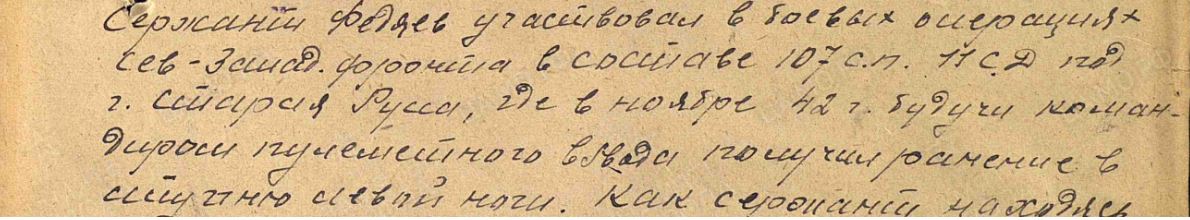 Сержант Федяев участвовал в боевых операциях
Сев-Запад. фронта в составе 107 с.п. 11 СД под
г. Старая Русса, где в ноябре 42 г. будучи коман-
диром пулеметного взвода получил ранение в
ступню левой ноги. Как сержант находясь